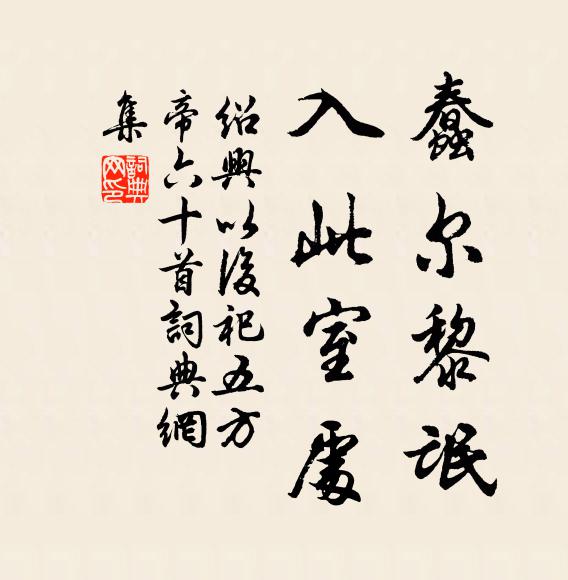 蠢尔黎氓
入此室處
紹興以後祀五方
帝六十首詞典網
集
詞典网印